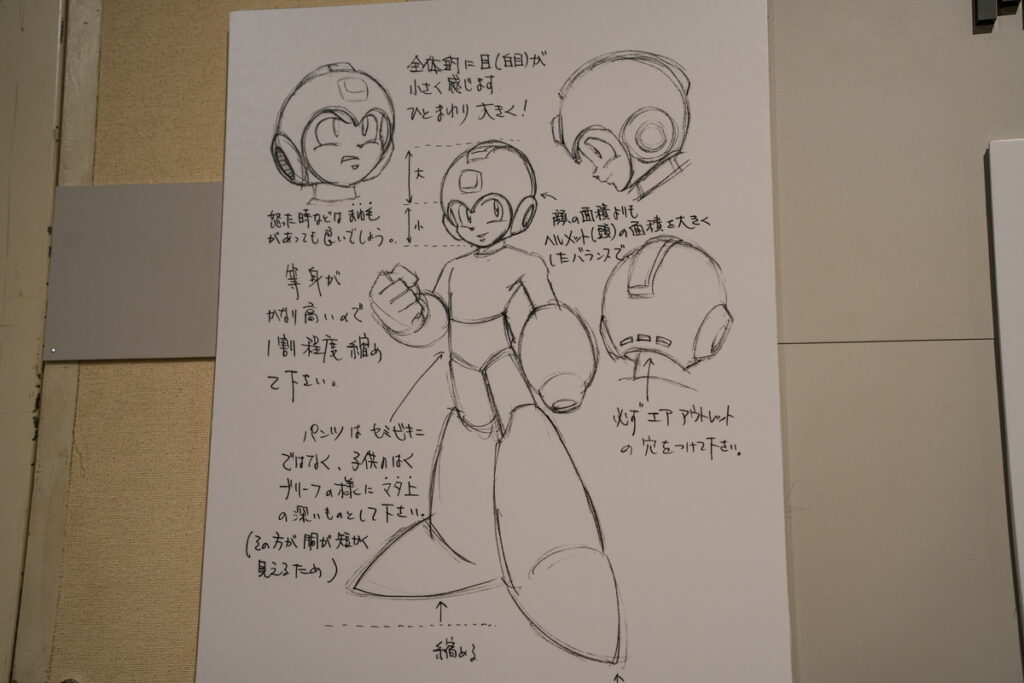 全体的に目(白目)が
小さく感じます
ひとまわり大きく!
大
小
怒った時などはまゆ毛
があっても良いでしょう。
顔の面積よりも
ヘルメット(頭)の面積を大きく
したバランスで
等身が
かなり高いので
1割程度縮め
て下さい。
必ずエアアウトレット
の穴をつけて下さい。
パンツはセミビキニ
ではなく、子供のはく
ブリーフの様にマタ上
の深いものとして下さい。
(その方が胴が短かく
見えるため)
縮める